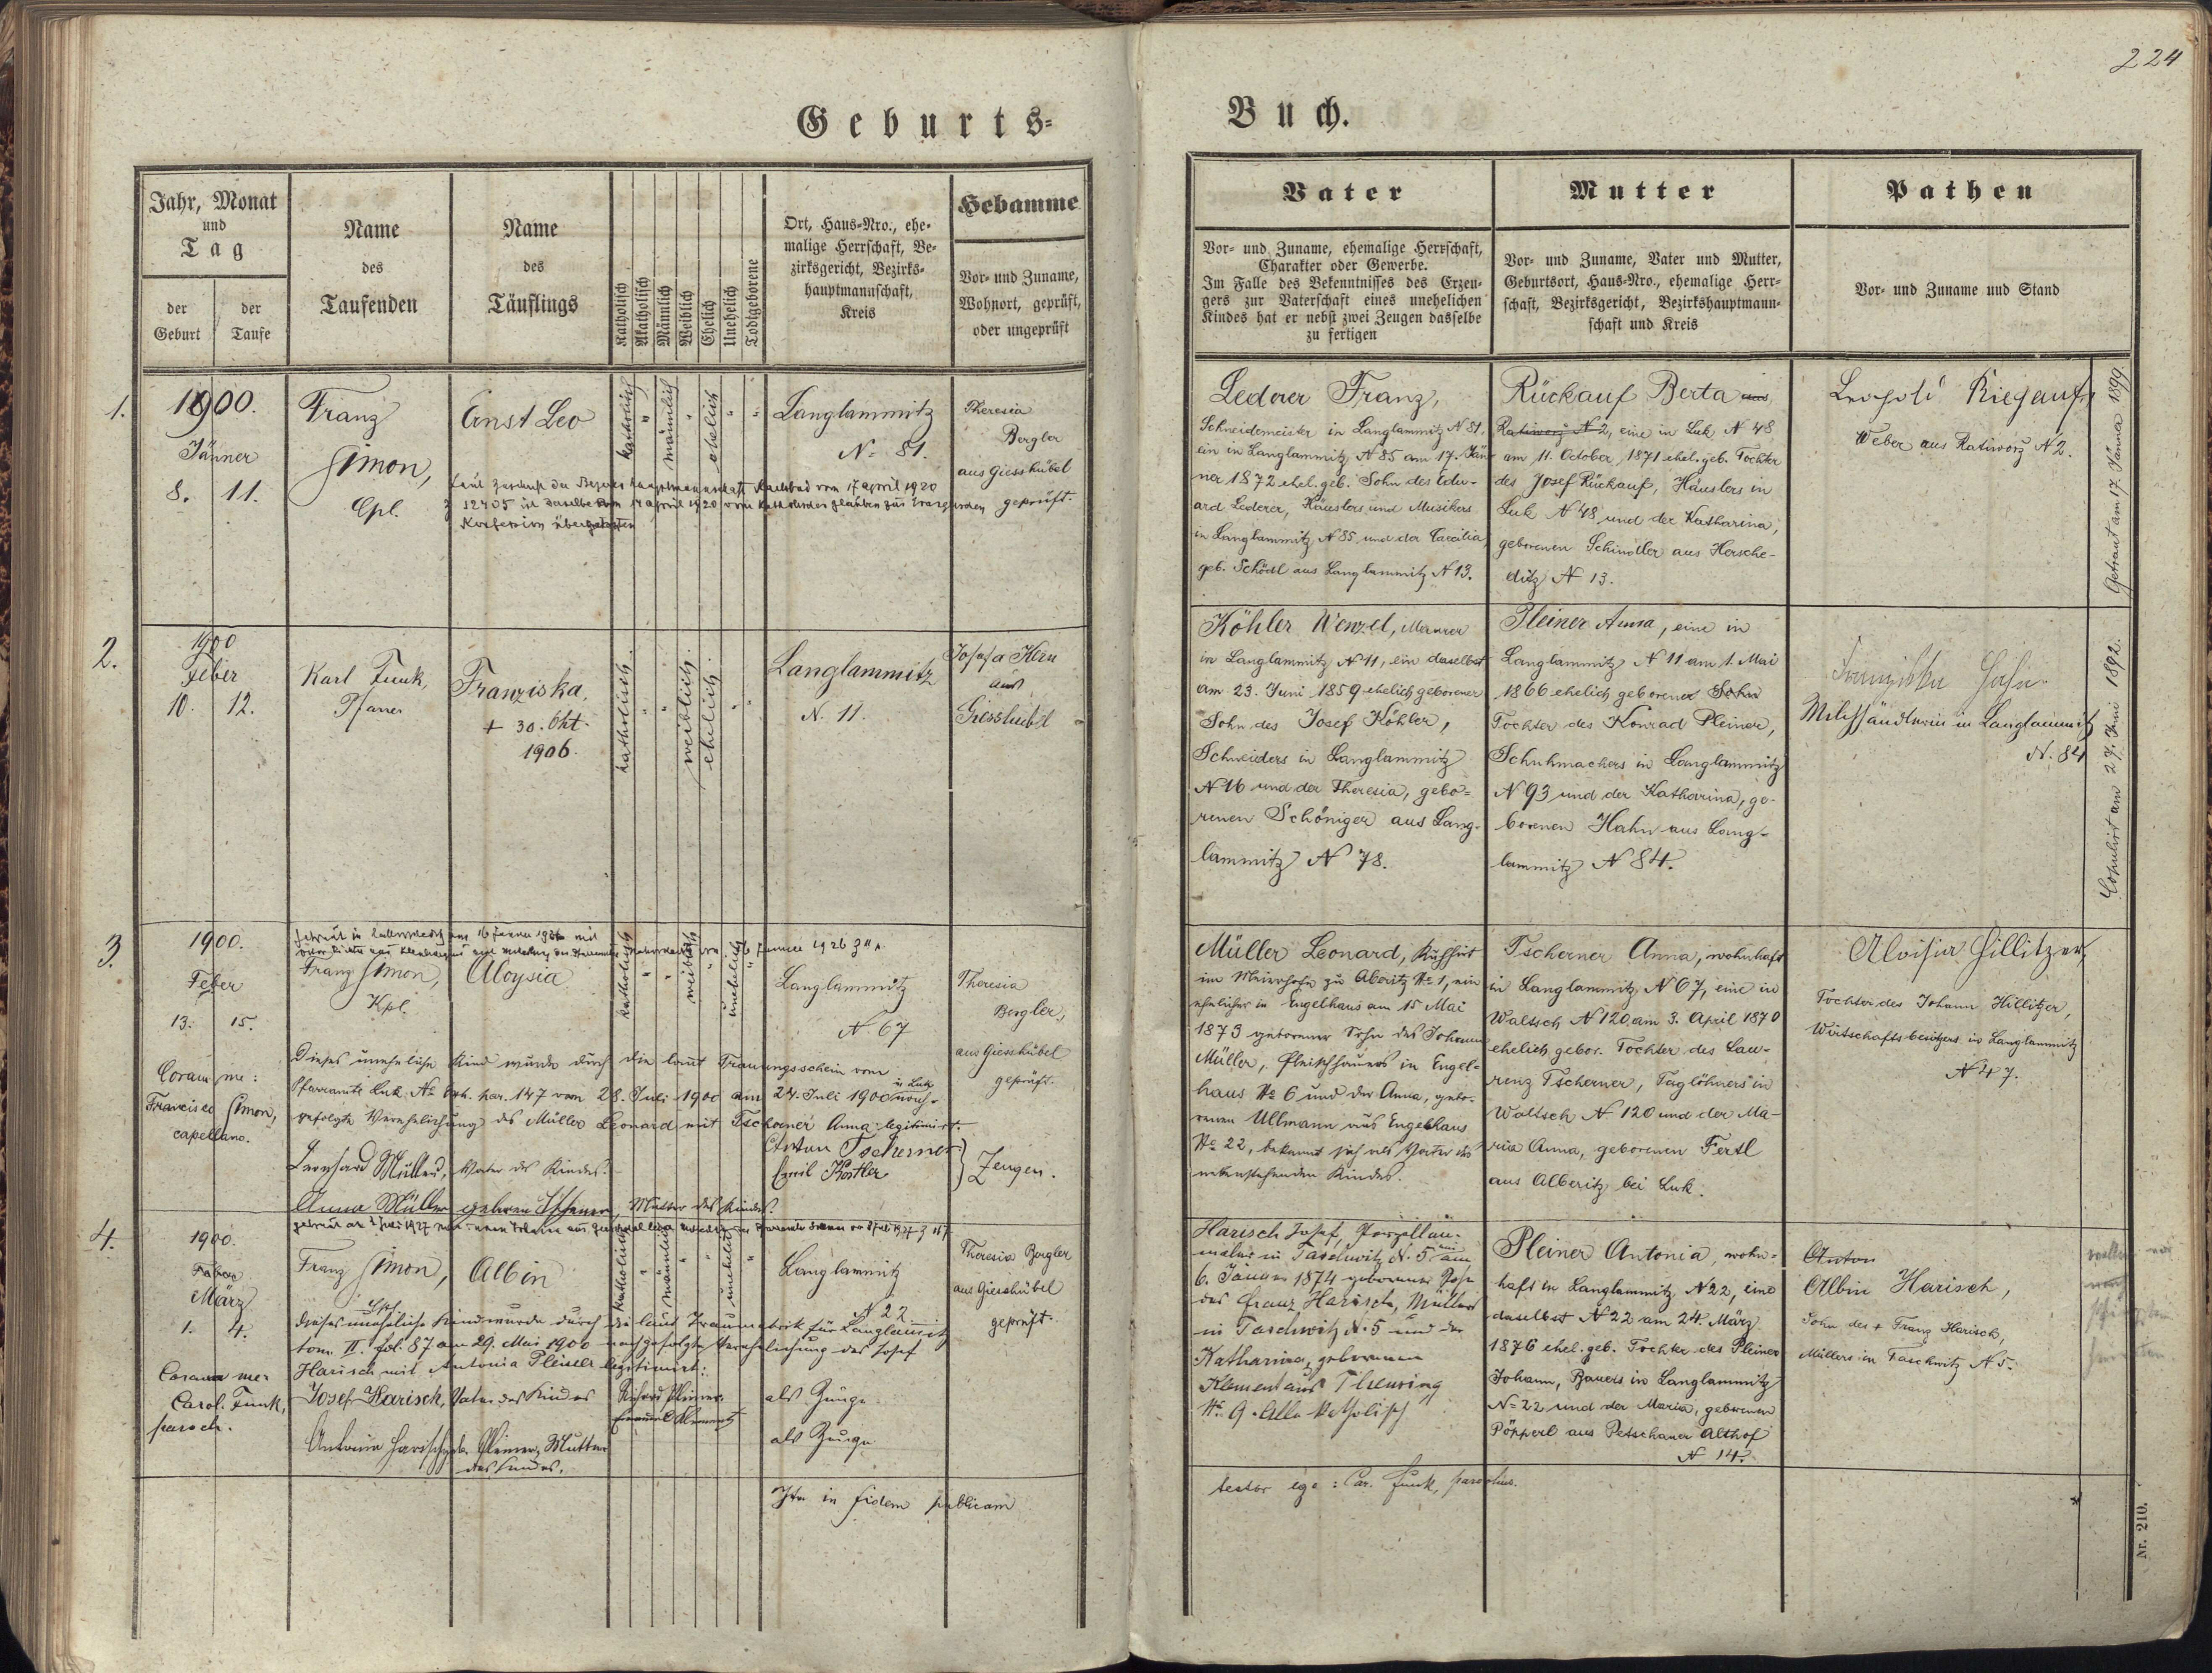 224
Geburts=
Buch.
Jahr, Monat
und
Tag
der
Geburt
der
Taufe
Name
des
Taufenden
Name
des
Täuflings
Katholisch
Akatholisch
Männlich
Weiblich
Ehelich
Unehelich
Todtgeborene
Ort, Haus-Nro., ehe-
malige Herrschaft, Be-
zirksgericht, Bezirks-
hauptmannschaft,
Kreis
Hebamme
Vor- und Zuname,
Wohnort, geprüft,
oder ungeprüft
Vater
Vor- und Zuname, ehemalige Herrschaft,
Charakter oder Gewerbe.
Im Falle des Bekenntnisses des Erzeu-
gers zur Vaterschaft eines unehelichen
Kindes hat er nebst zwei Zeugen dasselbe
zu fertigen
Mutter
Vor- und Zuname, Vater und Mutter,
Geburtsort, Haus-Nro., ehemalige Herr-
schaft, Bezirksgericht, Bezirkshauptmann-
schaft und Kreis
Pathen
Vor- und Zuname und Stand
1.
1900.
Jänner
8. 11.
Franz
Simon,
Cpl.
Ernst Leo
katholisch
männlich
ehelich
Langlammitz
N= 81.
Theresia
Bergler
aus Giesshübel
geprüft.
Laut Zuschrift der Bezirkshauptmannschaft Karlsbad vom 17 April 1920
Z 12405 ist daselbe vom 14 April 1920 vom katholischen Glauben zur
Konfession übergetreten
Lederer Franz,
Schneidemeister in Langlammitz N 81.
ein in Langlammitz N 85 am 17. Jän-
ner 1872 ehel. geb. Sohn des Edu-
ard Lederer, Häuslers und Musikers
in Langlammitz N 85 und der Caecilia,
geb. Schödl aus Langlammitz N 13.
Rückauf Berta aus
Ratiworz N 2, eine in Luk N 48
am 11. October 1871 ehel. geb. Tochter
des Josef Rückauf, Häuslers in
Luk N 48 und der Katharina,
geborenen Schindler aus Hersche-
ditz N 13.
Leopold Riegauf,
Weber aus Ratiworz N 2.
Getraut am 17. Jänner 1899
2.
1900
Feber
10. 12.
Karl Funk,
Pfarrer
Franziska,
+ 30. Okt.
1906.
katholisch.
weiblich.
ehelich.
Langlammitz
N. 11.
Josefa Kern
aus
Giesshübl
Köhler Wenzel, Maurer
in Langlammitz N 11, ein daselbst
am 23. Juni 1859 ehelich geborener
Sohn des Josef Köhler,
Schneiders in Langlammitz
N 16 und der Theresia, gebo=
renen Schöniger aus Lang-
lammitz N 78.
Pleiner Anna, eine in
Langlammitz N 11 am 1. Mai
1866 ehelich geborener Sohn
Tochter des Konrad Pleiner,
Schuhmachers in Langlammitz
N 93 und der Katharina, ge-
borenen Hahn aus Lang-
lammitz N 84.
Franziska Hahn
Milchhändlerin in Langlammitz
N. 84
Copulirt am 27. Juni 1892.
3.
1900.
Feber
13. 15.
Franz Simon,
Kpl.
Aloysia
katholisch
weiblich
unehelich
Langlammitz
N 67
Theresia
Bergler,
aus Giesshübel
geprüft.
Coram me:
Francisco Simon,
capellano.
Dieses uneheliche Kind wurde durch die laut Trauungsschein vom
Pfarramte Luk N= Exh. par. 147 vom 28. Juli 1900 am 24. Juli 1900 in Luk nach-
gefolgte Verehelichung des Müller Leonard mit Tscherner Anna legitimirt.
Leonhard Müller, Vater des Kindes.
Anton Tscherner
Emil Köstler
Zeugen.
Anna Müller geboren Tscherner, Mutter des Kindes.
Müller Leonard, Kuhhirt
im Meierhofe zu Alberitz N= 1, ein
ehelicher in Engelhaus am 15 Mai
1873 geborener Sohn des Johann
Müller, Fleischhauers in Engel-
haus N= 6 und der Anna, gebo-
renen Ullmann aus Engelhaus
N= 22, bekennt sich als Vater des
nebenstehenden Kindes.
Tscherner Anna, wohnhaft
in Langlammitz N 67, eine in
Waltsch N 120 am 3. April 1870
ehelich gebor. Tochter des Lau-
renz Tscherner, Taglöhners in
Waltsch N 120 und der Ma-
ria Anna, geborenen Fertl
aus Alberitz bei Luk.
Aloisia Hillitzer,
Tochter des Johann Hillitzer,
Wirtschaftsbesitzers in Langlammitz
N 47.
4.
1900.
Feber
März
1. 4.
Franz Simon,
Cpl.
Albin
katholisch
männlich
unehelich
Langlammitz
N 22
Theresia Bergler
aus Giesshübel
geprüft.
Dieses uneheliche Kind wurde durch die laut Traumatrik für Langlammitz
tom. II. fol. 87 am 29. Mai 1900 nachgefolgte Verehelichung des Josef
Harisch mit Antonia Pleiner legitimirt:
Coram me:
Carol. Funk,
paroch.
Josef Harisch, Vater des Kindes
Richard Pleiner
als Zeuge
Emanuel Klement
als Zeuge
Antonia Harisch geb. Pleiner, Mutter
des Kindes.
Harisch Josef, Porzellan-
maler in Taschwitz N. 5 ein am
6. Jänner 1874 geborener Sohn
des Franz Harisch, Müllers
in Taschwitz N. 5 und der
Katharina, geborenen
Klement aus Theusing
N= 9. Alle katholisch
Pleiner Antonia, wohn=
haft in Langlammitz N 22, eine
daselbst N 22 am 24. März
1876 ehel. geb. Tochter des Pleiner
Johann, Bauers in Langlammitz
N= 22 und der Maria, geborenen
Pöpperl aus Petschauer Althof
N 14.
Anton
Albin Harisch,
Sohn des + Franz Harisch,
Müllers in Taschwitz N 5.
Ita in fidem publicam
testor ego: Car. Funk, parochus.
Nr. 210.